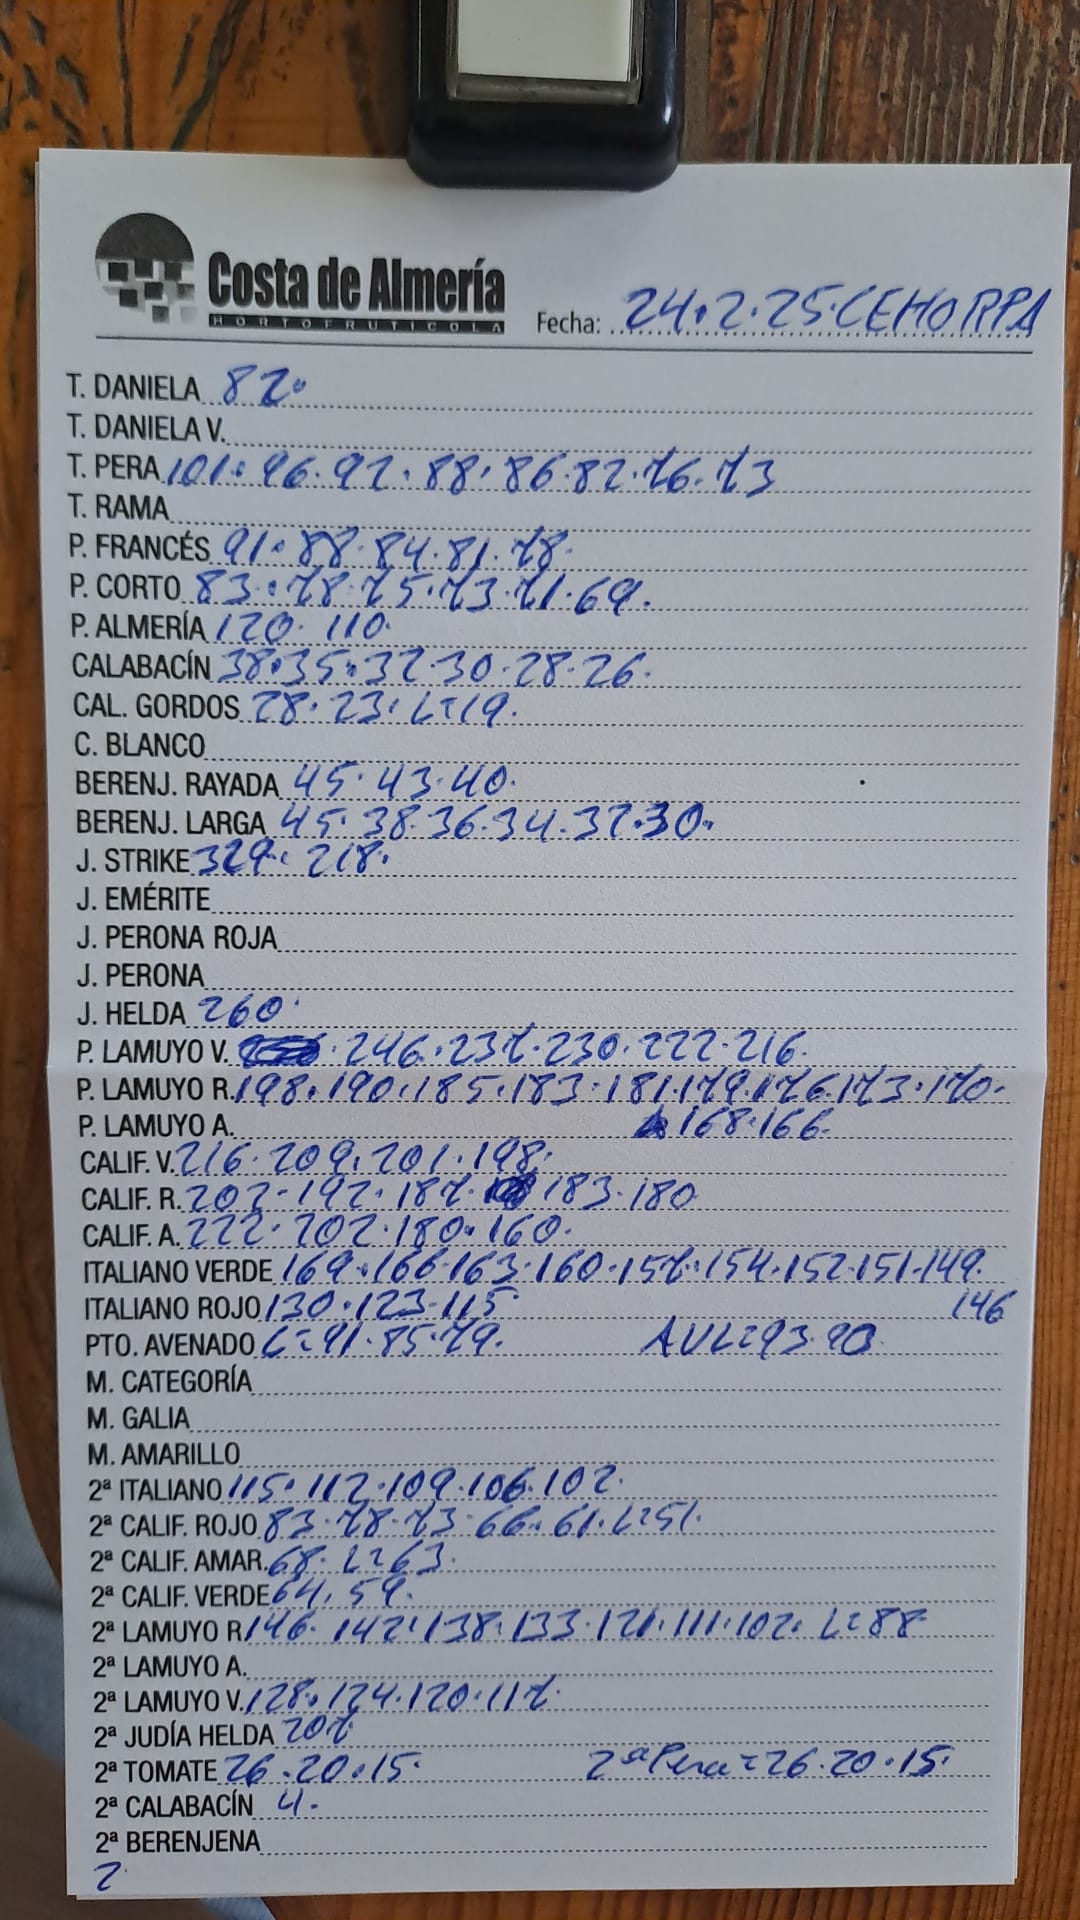 Costa de Almería
HORTOFRUTICOLA
Fecha: 24.2.25.CEHORPA
T. DANIELA 82.
T. DANIELA V.
T. PERA 101.96.92.88.86.82.76.73
T. RAMA
P. FRANCÉS 91.88.84.81.78.
P. CORTO 83.78.75.73.71.69.
P. ALMERÍA 120.110.
CALABACÍN 38.35.32.30.28.26.
CAL. GORDOS 28.23.L=19.
C. BLANCO
BERENJ. RAYADA 45.43.40.
BERENJ. LARGA 45.38.36.34.32.30.
J. STRIKE 329.218.
J. EMÉRITE
J. PERONA ROJA
J. PERONA
J. HELDA 260.
P. LAMUYO V. 246.237.230.222.216.
P. LAMUYO R. 198.190.185.183.181.179.176.173.170.
P. LAMUYO A. 168.166.
CALIF. V. 216.209.201.198.
CALIF. R. 202-192.187. 183.180
CALIF. A. 222.202.180.160.
ITALIANO VERDE 169.166.163.160.157.154.152.151.149.
ITALIANO ROJO 130.123.115. 146
PTO. AVENADO L=91.85.79. AVL=93.90
M. CATEGORÍA
M. GALIA
M. AMARILLO
2ª ITALIANO 115.112.109.106.102.
2ª CALIF. ROJO 83.78.73.66.61.L=51.
2ª CALIF. AMAR. 68.L=63.
2ª CALIF. VERDE 64.59.
2ª LAMUYO R 146.142.138.133.121.111.102.L=88
2ª LAMUYO A.
2ª LAMUYO V. 128.124.120.117.
2ª JUDÍA HELDA 207
2ª TOMATE 26.20.15. 2ªPera=26.20.15.
2ª CALABACÍN 4.
2ª BERENJENA
2